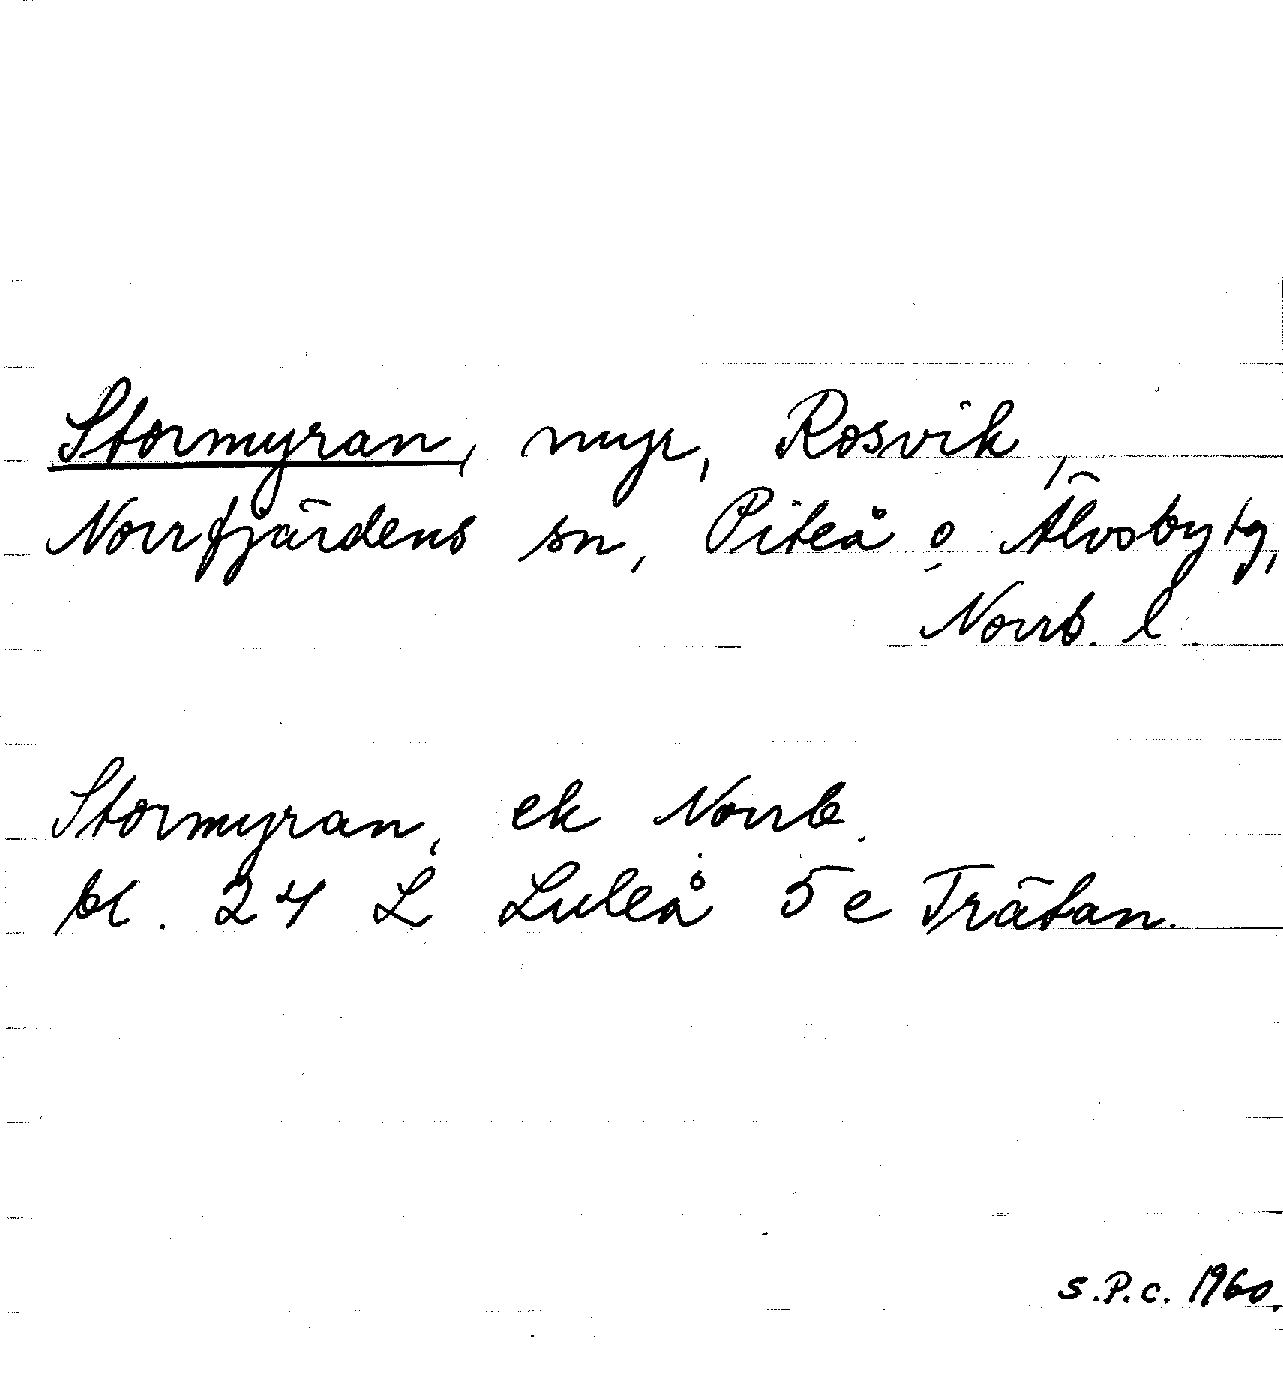 Stormyran, myr, Rosvik,
Norrfjärdens sn, Piteå o. Älvsby tg,
Norrb. l.
Stormyran, ek Norrb.
bl. 24 L Luleå 5 e Trätan.
S.P.C. 1960.